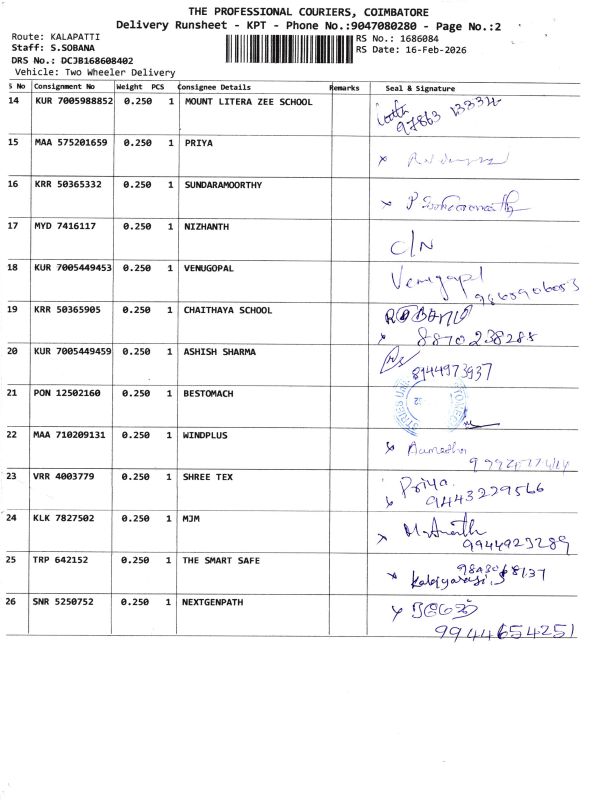 THE PROFESSIONAL COURIERS, COIMBATORE
Delivery Runsheet - KPT - Phone No.:9047080280 - Page No.:2
Route: KALAPATTI RS No.: 1686084
Staff: S.SOBANA RS Date: 16-Feb-2026
DRS No.: DCJB168608402
Vehicle: Two Wheeler Delivery
S No Consignment No Weight PCS Consignee Details Remarks Seal & Signature
14 KUR 7005988852 0.250 1 MOUNT LITERA ZEE SCHOOL
97863 13334
15 MAA 575201659 0.250 1 PRIYA
16 KRR 50365332 0.250 1 SUNDARAMOORTHY
17 MYD 7416117 0.250 1 NIZHANTH
C/N
18 KUR 7005449453 0.250 1 VENUGOPAL
Venugopl
19 KRR 50365905 0.250 1 CHAITHAYA SCHOOL
8870238288
20 KUR 7005449459 0.250 1 ASHISH SHARMA
8144973937
21 PON 12502160 0.250 1 BESTOMACH
22 MAA 710209131 0.250 1 WINDPLUS
23 VRR 4003779 0.250 1 SHREE TEX
Priya
9443229566
24 KLK 7827502 0.250 1 MJM
M. Ananth
9944923289
25 TRP 642152 0.250 1 THE SMART SAFE
26 SNR 5250752 0.250 1 NEXTGENPATH
9944654251